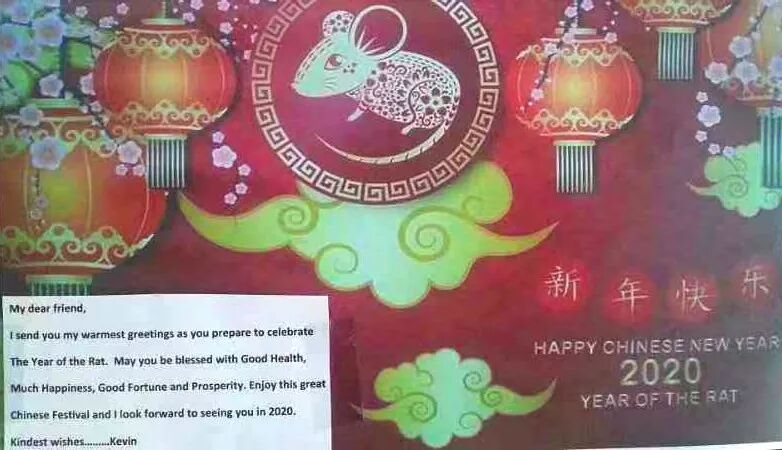 新年快乐
HAPPY CHINESE NEW YEAR
2020
YEAR OF THE RAT
My dear friend,
I send you my warmest greetings as you prepare to celebrate
The Year of the Rat. May you be blessed with Good Health,
Much Happiness, Good Fortune and Prosperity. Enjoy this great
Chinese Festival and I look forward to seeing you in 2020.
Kindest wishes.........Kevin